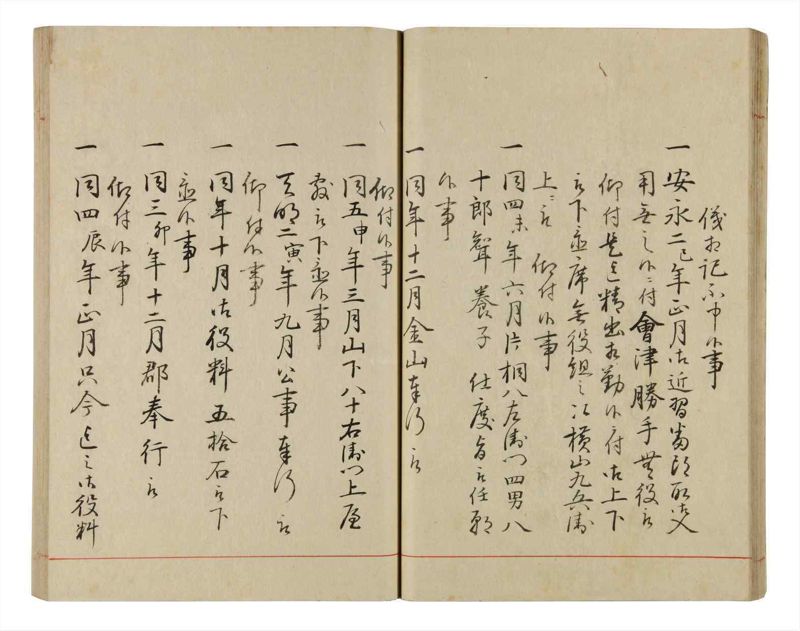 儀相記不申候事
一安永二巳年正月御近習番頭取次
用無之候ニ付會津勝手無役被
仰付是迄精出相勤候付御上下
被下並席無役組之次横山九兵衛
上ニ被 仰付候事
一同四未年六月片桐八左衛門四男八
十郎聟養子仕度旨被任願
候事
一同年十二月金山奉行被
仰付候事
一同五申年三月山下八十右衛門上屋
敷被下置候事
一天明二寅年九月公事奉行被
仰付候事
一同年十月御役料五拾石被下
置候事
一同三卯年十二月郡奉行被
仰付候事
一同四辰年正月只今迄之御役料